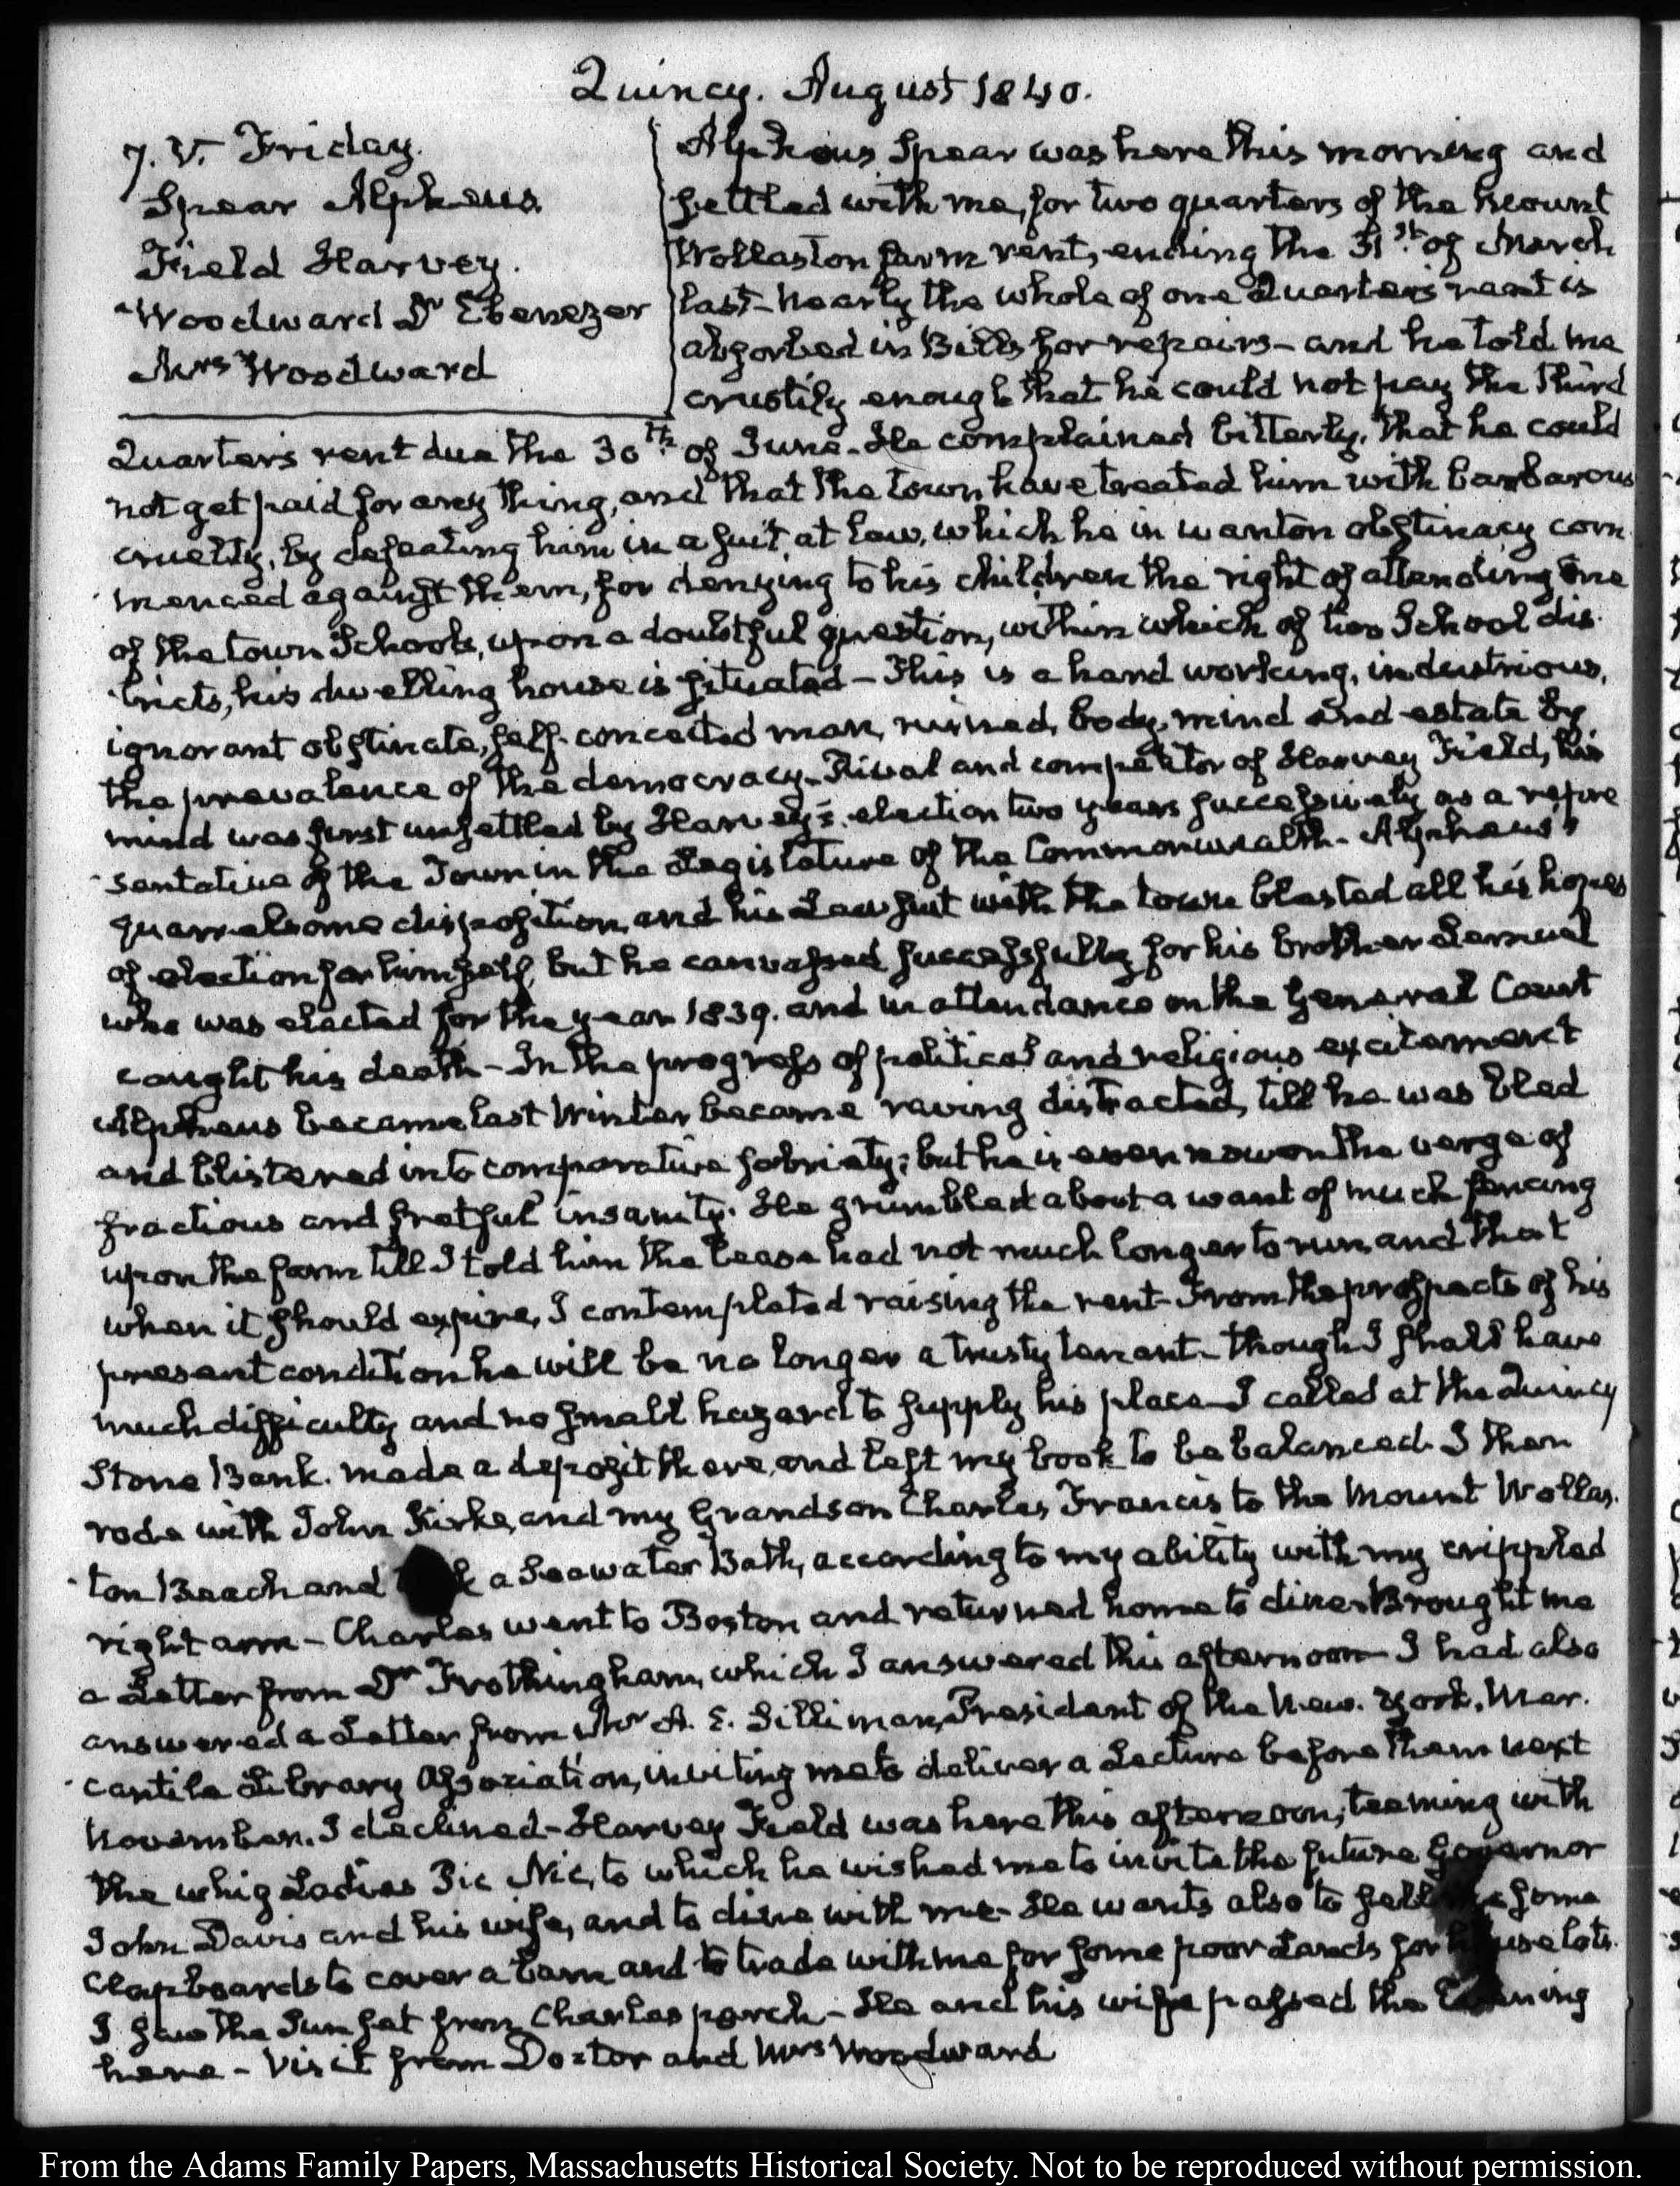 Quincy. August 1840.
7. V. Friday.
Spear Alpheus.
Field Harvey.
Woodward Dr Ebenezer
Mrs Woodward
Alpheus Spear was here this morning and
settled with me, for two quarters of the Mount
Wollaston farm rent, ending the 31st of March
last - Nearly the whole of one Quarter's rent is
absorbed in Bills for repairs - and he told me
crustily enough that he could not pay the third
Quarter's rent due the 30th of June. He complained bitterly, that he could
not get paid for any thing, and that the town have treated him with barbarous
cruelty, by defeating him in a suit at law, which he in wanton obstinacy com
menced against them, for denying to his children the right of attending one
of the town Schools, upon a doubtful question, within which of two School dis
tricts, his dwelling house is situated - This is a hard working, industrious,
ignorant obstinate, self-conceited man, ruined, body, mind and estate by
the prevalence of the democracy. Rival and competitor of Harvey Field, his
mind was first unsettled by Harvey's election two years successively as a repre
sentative of the Town in the Legislature of the Commonwealth - Alpheus's
quarrelsome disposition, and his Law suit with the town blasted all his hopes
of election for himself, but he canvassed successfully for his brother Lemuel
who was elected for the year 1839. and in attendance on the General Court
caught his death - In the progress of political and religious excitement
Alpheus became last Winter became raving distracted, till he was bled
and blistered into comparative sobriety; but he is even now on the verge of
fractious and fretful insanity. He grumbled about a want of much fencing
upon the farm till I told him the lease had not much longer to run, and that
when it should expire, I contemplated raising the rent - From the prospects of his
present condition he will be no longer a trusty tenant - though I shall have
much difficulty and no small hazard to supply his place - I called at the Quincy
Stone Bank. made a deposit there, and left my book to be balanced. I then
rode with John Kirke, and my Grandson Charles Francis to the Mount Wollas.
ton Beach and a Seawater Bath, according to my ability with my crippled
right arm - Charles went to Boston and returned home to dine. Brought me
a Letter from Dr Frothingham, which I answered this afternoon - I had also
answered a Letter from Mr A. E. Silliman, President of the New. York. Mer.
cantile Library Association, inviting me to deliver a Lecture before them next
November. I declined - Harvey Field was here this afternoon, teeming with
the whig Ladies Pic Nic, to which he wished me to invite the future Governor
John Davis and his wife, and to dine with me - He wants also to sell me some
clapboards to cover a barn and to trade with me for some poor Lands for house lots.
I saw the Sun set from Charles porch - He and his wife passed the Evening
here - Visit from Doctor and Mrs Woodward
From the Adams Family Papers, Massachusetts Historical Society. Not to be reproduced without permission.